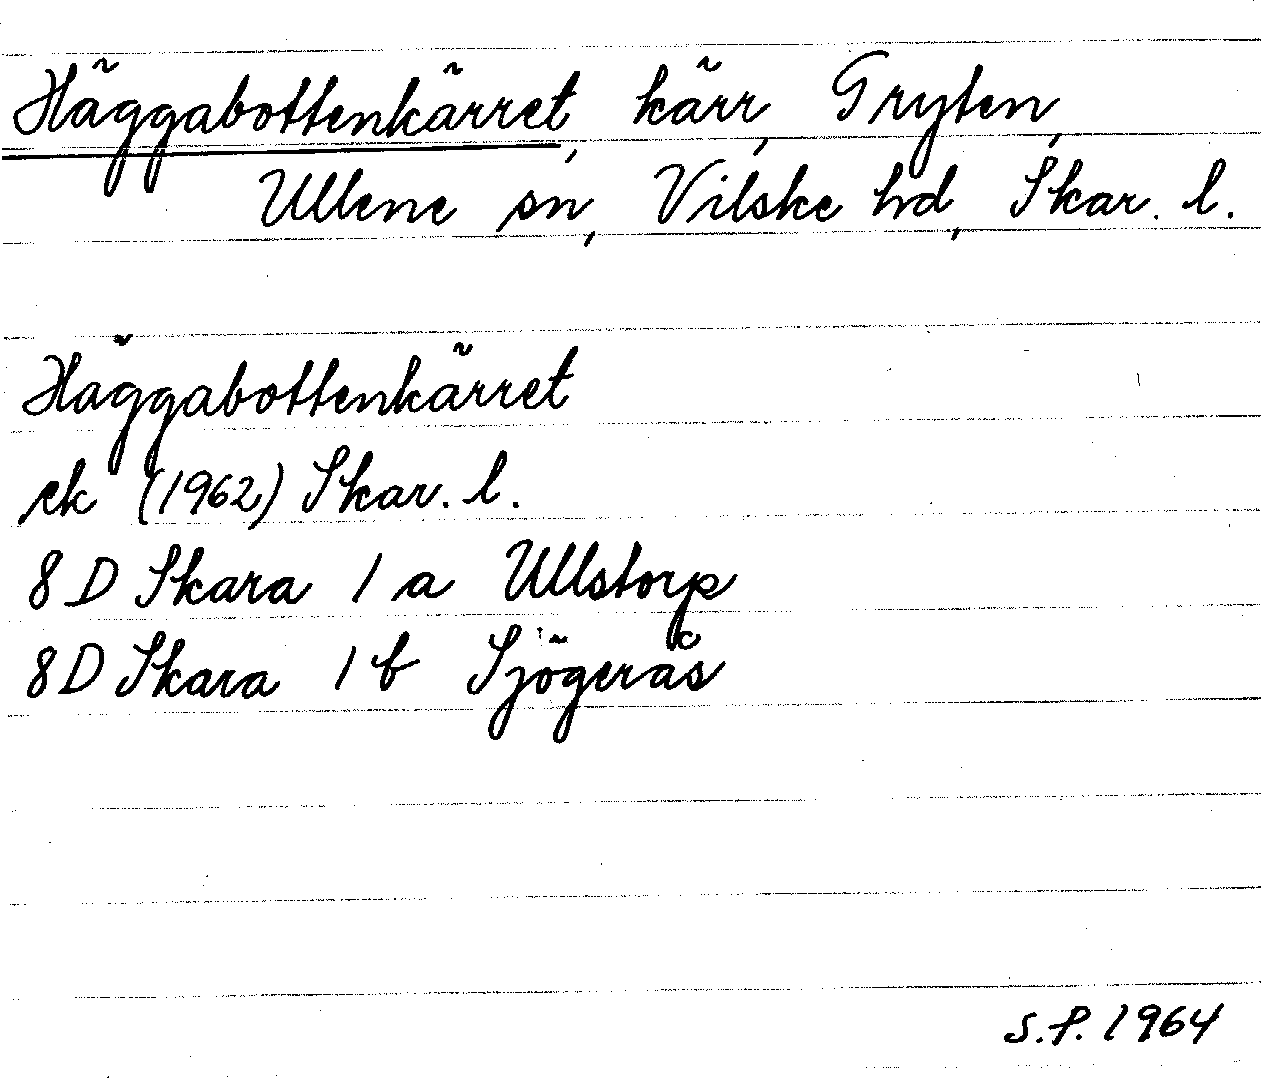 Häggabottenkärret, kärr, Gryten,
Ullene sn, Vilske hd, Skar. l.
Häggabottenkärret
ek (1962) Skar. l.
8 D Skara 1 a Ullstorp
8 D Skara 1 b Sjögerås
S.P. 1964